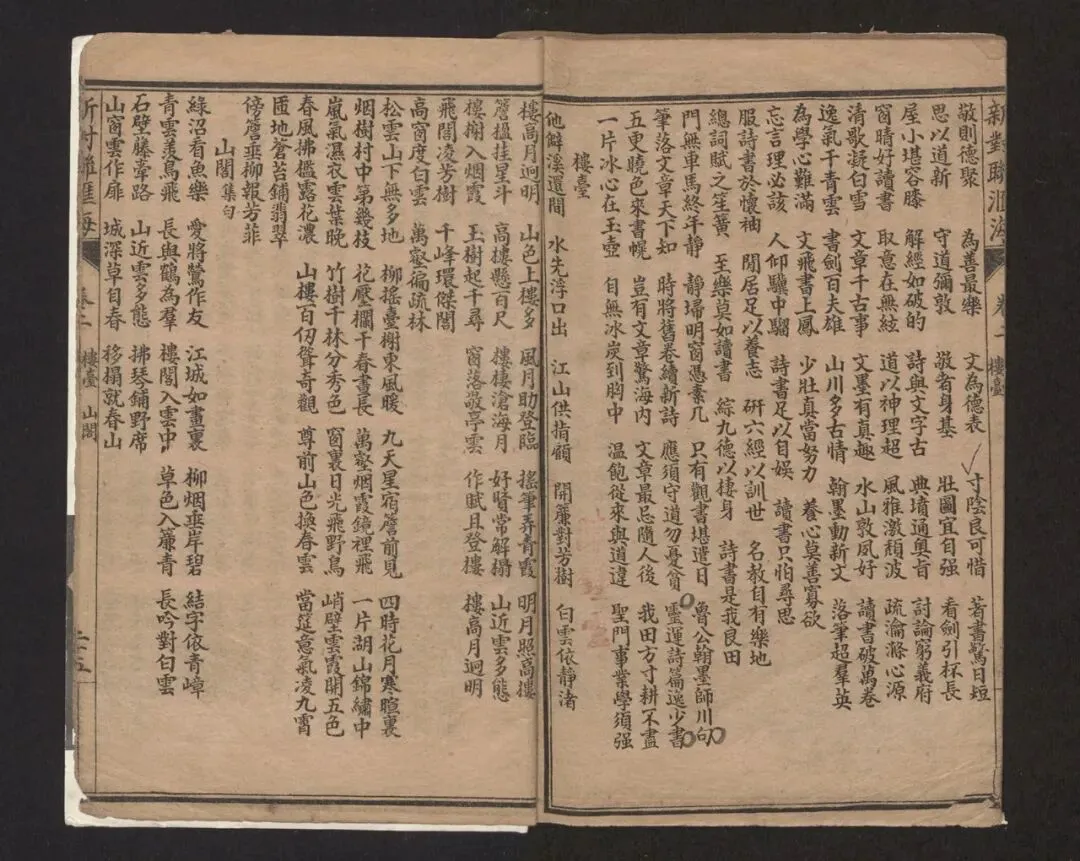 新對聯滙海 卷二 樓臺
敬則德聚 為善最樂 文為德表 寸陰良可惜 著書驚日短
思以道新 守道彌敦 敬者身基 壯圖宜自强 看劍引杯長
屋小堪容膝 解經如破的 詩與文字古 典墳通奧旨 討論窮義府
窗晴好讀書 取意在無絃 道以神理超 風雅激頹波 疏瀹滌心源
清歌凝白雪 文章千古事 文墨有真趣 水山敦夙好 讀書破萬卷
逸氣干青雲 書劍百夫雄 山川多古情 翰墨動新文 落筆超羣英
為學心難滿 文飛書上鳳 少壯真當努力 養心莫善寡欲
忘言理必該 人仰驥中騮 詩書足以自娱 讀書只怕尋思
服詩書於懷袖 閒居足以養志 研六經以訓世 名教自有樂地
總詞賦之笙簧 至樂莫如讀書 綜九德以棲身 詩書是我良田
門無車馬終年静 靜埽明窗憑素几 只有觀書堪遣日 魯公翰墨師川句
筆落文章天下知 時將舊卷續新詩 應須守道勿憂貧 靈運詩篇逸少書
五更曉色來書幌 豈有文章驚海内 文章最忌隨人後 我田方寸耕不盡
一片冰心在玉壺 自無冰炭到胸中 温飽從來與道違 聖門事業學須强
樓臺
他鮮溪還間 水先浮口出 江山供指顧 開簾對芳樹 白雲依静渚
樓高月迥明 山色上樓多 風月助登臨 搖筆弄青霞 明月照高樓
簷楹挂星斗 高樓懸百尺 樓棲滄海月 好賢常解榻 山近雲多態
樓榭入烟霞 玉樹起千尋 窗落敬亭雲 作賦且登樓 樓高月迥明
飛閣凌芳樹 千峰環傑閣
高窗度白雲 萬壑徧疏林
松雲山下無多地 柳搖臺榭東風暖 九天星宿簷前見 四時花月寒暄裏
烟樹村中第幾枝 花壓欄干春晝長 萬壑烟霞鏡裡飛 一片湖山錦繡中
嵐氣濕衣雲葉晚 竹樹千林分秀色 窗裏日光飛野鳥 峭壁雲霞開五色
春風拂檻露花濃 山樓百仞聳奇觀 尊前山色換春雲 當筵意氣凌九霄
匝地蒼苔鋪翡翠
傍簷垂柳報芳菲
山閣集句
綠沼看魚樂 愛將鶯作友 江城如畫裏 柳烟垂岸碧 結宇依青嶂
青雲羨鳥飛 長與鶴為羣 樓閣入雲中 草色入簾青 長吟對白雲
石壁藤牽路 山近雲多態 拂琴鋪野席
山窗雲作扉 城深草自春 移榻就春山
新對聯匯海 卷二 樓臺 山閣 二十五